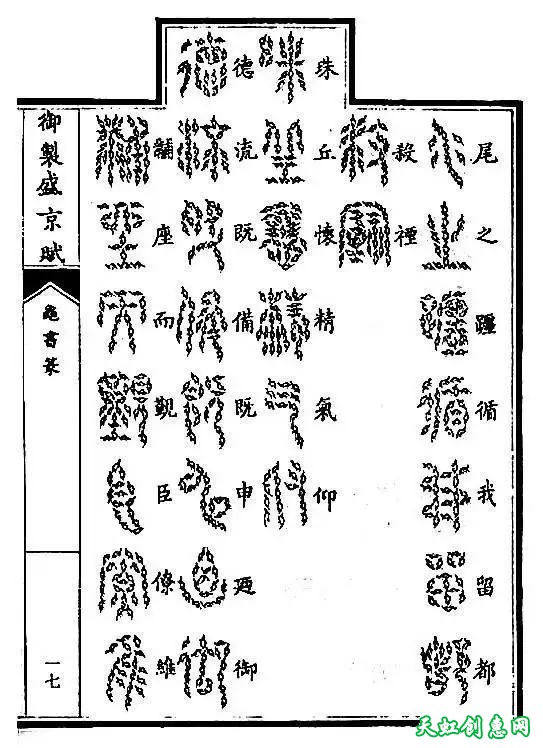 尾之躔循我留都
殺禋
珠丘懷精氣仰
德流既備既申廼御
黼座而覲臣僚維
御製盛京賦
龜書篆
一七
天虹创意网